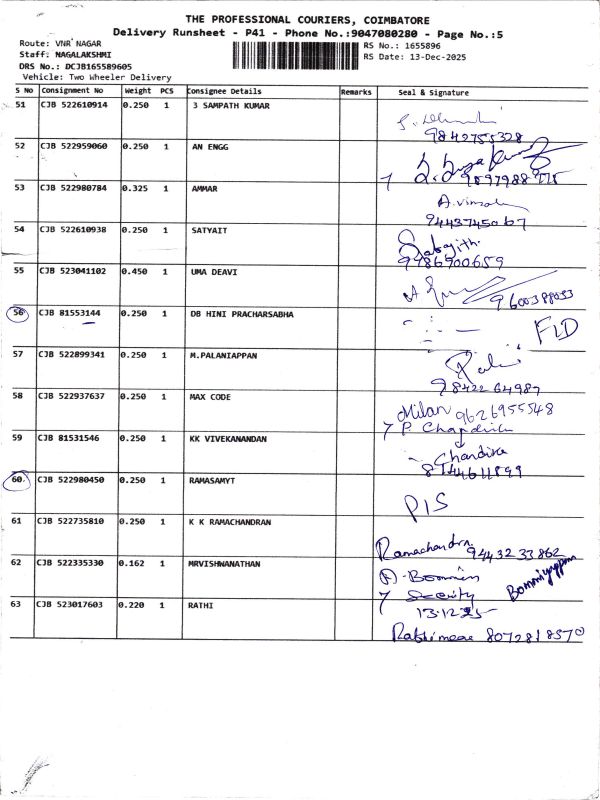 THE PROFESSIONAL COURIERS, COIMBATORE
Delivery Runsheet - P41 - Phone No.:9047080280 - Page No.:5
Route: VNR NAGAR
Staff: NAGALAKSHMI
DRS No.: DCJB165589605
Vehicle: Two Wheeler Delivery
RS No.: 1655896
RS Date: 13-Dec-2025
S No Consignment No Weight PCS Consignee Details Remarks Seal & Signature
51 CJB 522610914 0.250 1 3 SAMPATH KUMAR
9842755328
52 CJB 522959060 0.250 1 AN ENGG
53 CJB 522980784 0.325 1 AMMAR
A.Vimal
9443745067
54 CJB 522610938 0.250 1 SATYAIT
Sabajith.
9786900659
55 CJB 523041102 0.450 1 UMA DEAVI
9600388033
56 CJB 81553144 0.250 1 DB HINI PRACHARSABHA
FLD
57 CJB 522899341 0.250 1 M.PALANIAPPAN
9842264987
58 CJB 522937637 0.250 1 MAX CODE
Milan 9626955548
7 P. Chandrika
59 CJB 81531546 0.250 1 KK VIVEKANANDAN
Chandika
8144611899
60 CJB 522980450 0.250 1 RAMASAMYT
P/S
61 CJB 522735810 0.250 1 K K RAMACHANDRAN
Ramachandra. 9443233862
62 CJB 522335330 0.162 1 MRVISHWANATHAN
Security
13.12.25
63 CJB 523017603 0.220 1 RATHI
8072818570